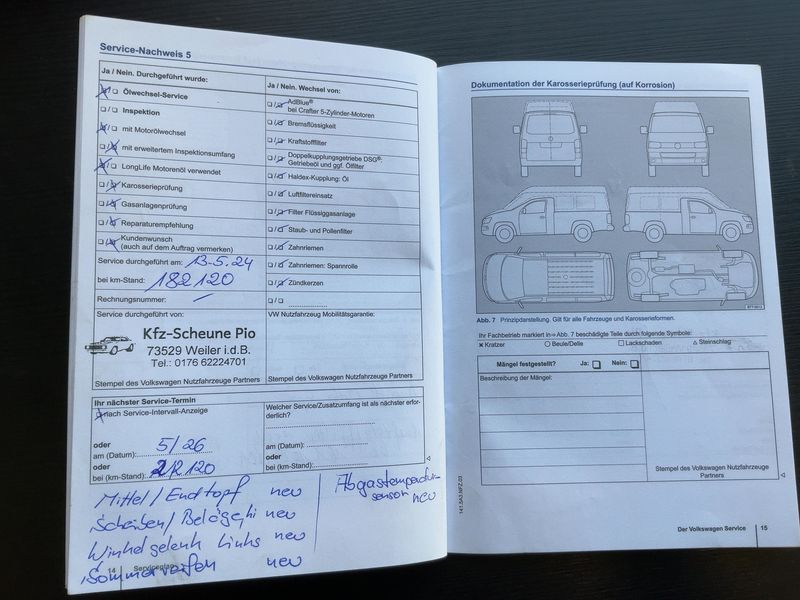 Service-Nachweis 5
Ja / Nein. Durchgeführt wurde:
Ölwechsel-Service
Inspektion
mit Motorölwechsel
mit erweitertem Inspektionsumfang
LongLife Motorenöl verwendet
Karosserieprüfung
Gasanlagenprüfung
Reparaturempfehlung
Kundenwunsch
(auch auf dem Auftrag vermerken)
Service durchgeführt am: 13.5.24
bei km-Stand: 182120
Rechnungsnummer: /
Service durchgeführt von:
Kfz-Scheune Pio
73529 Weiler i.d.B.
Tel.: 0176 62224701
Stempel des Volkswagen Nutzfahrzeuge Partners
Ja / Nein. Wechsel von:
AdBlue®
bei Crafter 5-Zylinder-Motoren
Bremsflüssigkeit
Kraftstofffilter
Doppelkupplungsgetriebe DSG®:
Getriebeöl und ggf. Ölfilter
Haldex-Kupplung: Öl
Luftfiltereinsatz
Filter Flüssiggasanlage
Staub- und Pollenfilter
Zahnriemen
Zahnriemen: Spannrolle
Zündkerzen
VW Nutzfahrzeug Mobilitätsgarantie:
Stempel des Volkswagen Nutzfahrzeuge Partners
Ihr nächster Service-Termin
nach Service-Intervall-Anzeige
oder
am (Datum): 5/26
oder
bei (km-Stand): 212120
Welcher Service/Zusatzumfang ist als nächster erfor-
derlich?
am (Datum):
oder
bei (km-Stand):
Mittel/Endtopf neu
Scheiben/Beläge hi neu
Winkelgelenk links neu
Sommerreifen neu
Abgastemperatur-
sensor neu
14 Serviceplan
Dokumentation der Karosserieprüfung (auf Korrosion)
Abb. 7 Prinzipdarstellung. Gilt für alle Fahrzeuge und Karosserieformen.
Ihr Fachbetrieb markiert in ⇒ Abb. 7 beschädigte Teile durch folgende Symbole:
Kratzer Beule/Delle Lackschaden Steinschlag
Mängel festgestellt? Ja: Nein:
Beschreibung der Mängel:
Stempel des Volkswagen Nutzfahrzeuge
Partners
Der Volkswagen Service 15